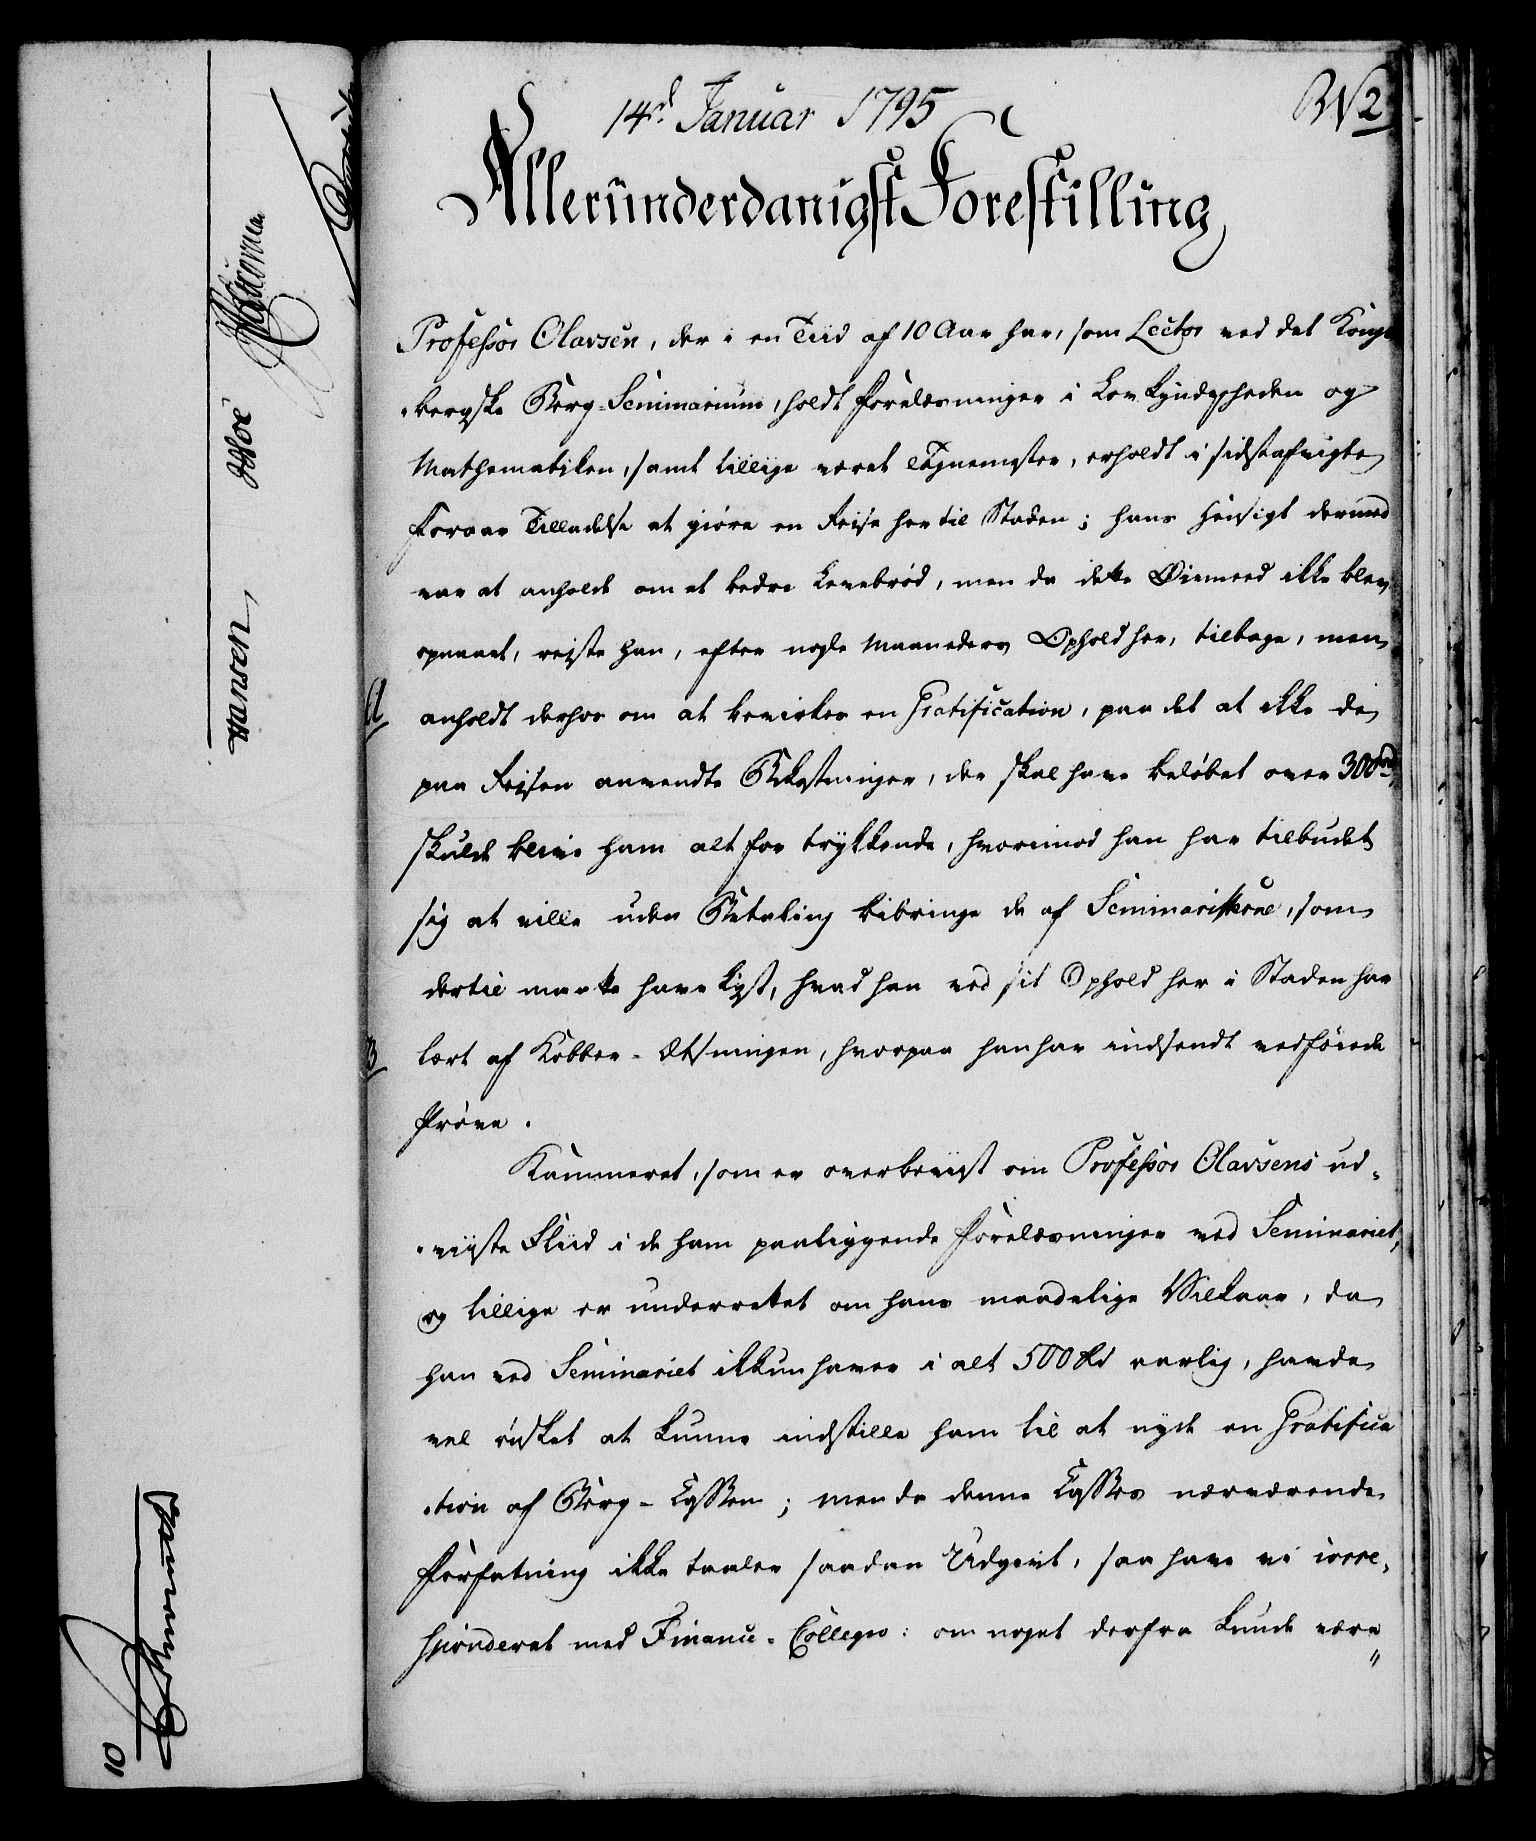 14d Januar 1795
BN2
Allerunderdanigst Forestilling
Professor Olavsen, der i en Tiid af 10 Aar har, som Lector ved det Kongs
bergske Berg-Seminarium, holdt Forelæsninger i Lovkyndigheden og
Mathematiken, samt tillige været Tegnemester, erholdt i sidstafvigte
Foraar Tilladelse at giøre en Reise her til Staden; hans Hensigt dermed
var at anholde om et bedre Levebrød, men da dette Øiemeed ikke blev
opnaaet, reiste han, efter nogle Maaneders Ophold her, tilbage, men
A
anholdt derhos om at bevirkes en Gratification, paa det at ikke de
paa Reisen anvendte Bekostninger, der skal have beløbet over 300 rd,
skulde blive ham alt for trykkende, hvorimod han har tilbudet
sig at ville uden Betaling bibringe de af Seminaristerne, som
dertil maatte have Lyst, hvad han ved sit Ophold her i Staden har
B
lært af Kobber-Ætsningen, hvorpaa han har indsendt vedføiede
Prøve.
Kammeret, som er overbeviist om Professor Olavsens ud-
viiste Fliid i de ham paaliggende Forelæsninger ved Seminariet,
og tillige er underrettet om hans maadelige Vilkaar, da
han ved Seminariet ikkun haver i alt 500 Rd aarlig, havde
vel ønsket at kunne indstille ham til at nyde en Gratifica
tion af Berg-Cassen; men da denne Casses nærværende
Forfatning ikke taaler saadan Udgivt, saa have vi corre-
sponderet med Finance-Collegio: om noget derfra kunde være
Hansen
10